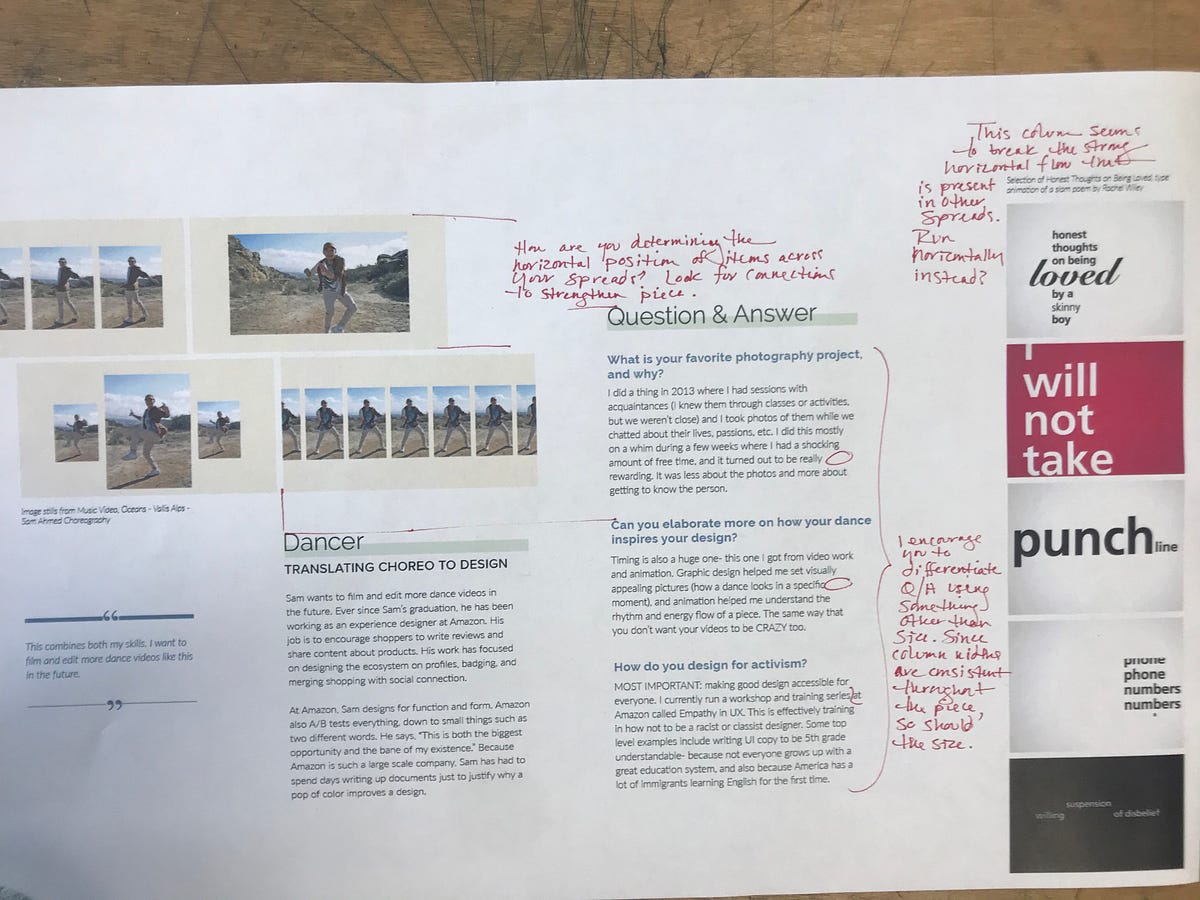 This column seems
to break the strong
horizontal flow that
is present
in other
spreads.
Run
horizontally
instead?
Selection of Honest Thoughts on Being Loved, type
animation of a slam poem by Rachel Wiley
How are you determining the
horizontal position of items across
your spreads? Look for connections
to strengthen piece.
Image stills from Music Video, Oceans - Vallis Alps -
Sam Ahmed Choreography
“
This combines both my skills. I want to
film and edit more dance videos like this
in the future.
”
Dancer
TRANSLATING CHOREO TO DESIGN
Sam wants to film and edit more dance videos in
the future. Ever since Sam's graduation, he has been
working as an experience designer at Amazon. His
job is to encourage shoppers to write reviews and
share content about products. His work has focused
on designing the ecosystem on profiles, badging, and
merging shopping with social connection.
At Amazon, Sam designs for function and form. Amazon
also A/B tests everything, down to small things such as
two different words. He says, "This is both the biggest
opportunity and the bane of my existence." Because
Amazon is such a large scale company, Sam has had to
spend days writing up documents just to justify why a
pop of color improves a design.
Question & Answer
What is your favorite photography project,
and why?
I did a thing in 2013 where I had sessions with
acquaintances (I knew them through classes or activities,
but we weren't close) and I took photos of them while we
chatted about their lives, passions, etc. I did this mostly
on a whim during a few weeks where I had a shocking
amount of free time, and it turned out to be really
rewarding. It was less about the photos and more about
getting to know the person.
Can you elaborate more on how your dance
inspires your design?
Timing is also a huge one- this one I got from video work
and animation. Graphic design helped me set visually
appealing pictures (how a dance looks in a specific
moment), and animation helped me understand the
rhythm and energy flow of a piece. The same way that
you don't want your videos to be CRAZY too.
How do you design for activism?
MOST IMPORTANT: making good design accessible for
everyone. I currently run a workshop and training series at
Amazon called Empathy in UX. This is effectively training
in how not to be a racist or classist designer. Some top
level examples include writing UI copy to be 5th grade
understandable- because not everyone grows up with a
great education system, and also because America has a
lot of immigrants learning English for the first time.
I encourage
you to
differentiate
Q/A using
something
other than
size. Since
column widths
are consistent
throughout
the piece,
so should
the size.
honest
thoughts
on being
loved
by a
skinny
boy
I
will
not
take
punch line
phone
phone
numbers
numbers
suspension
willing of disbelief